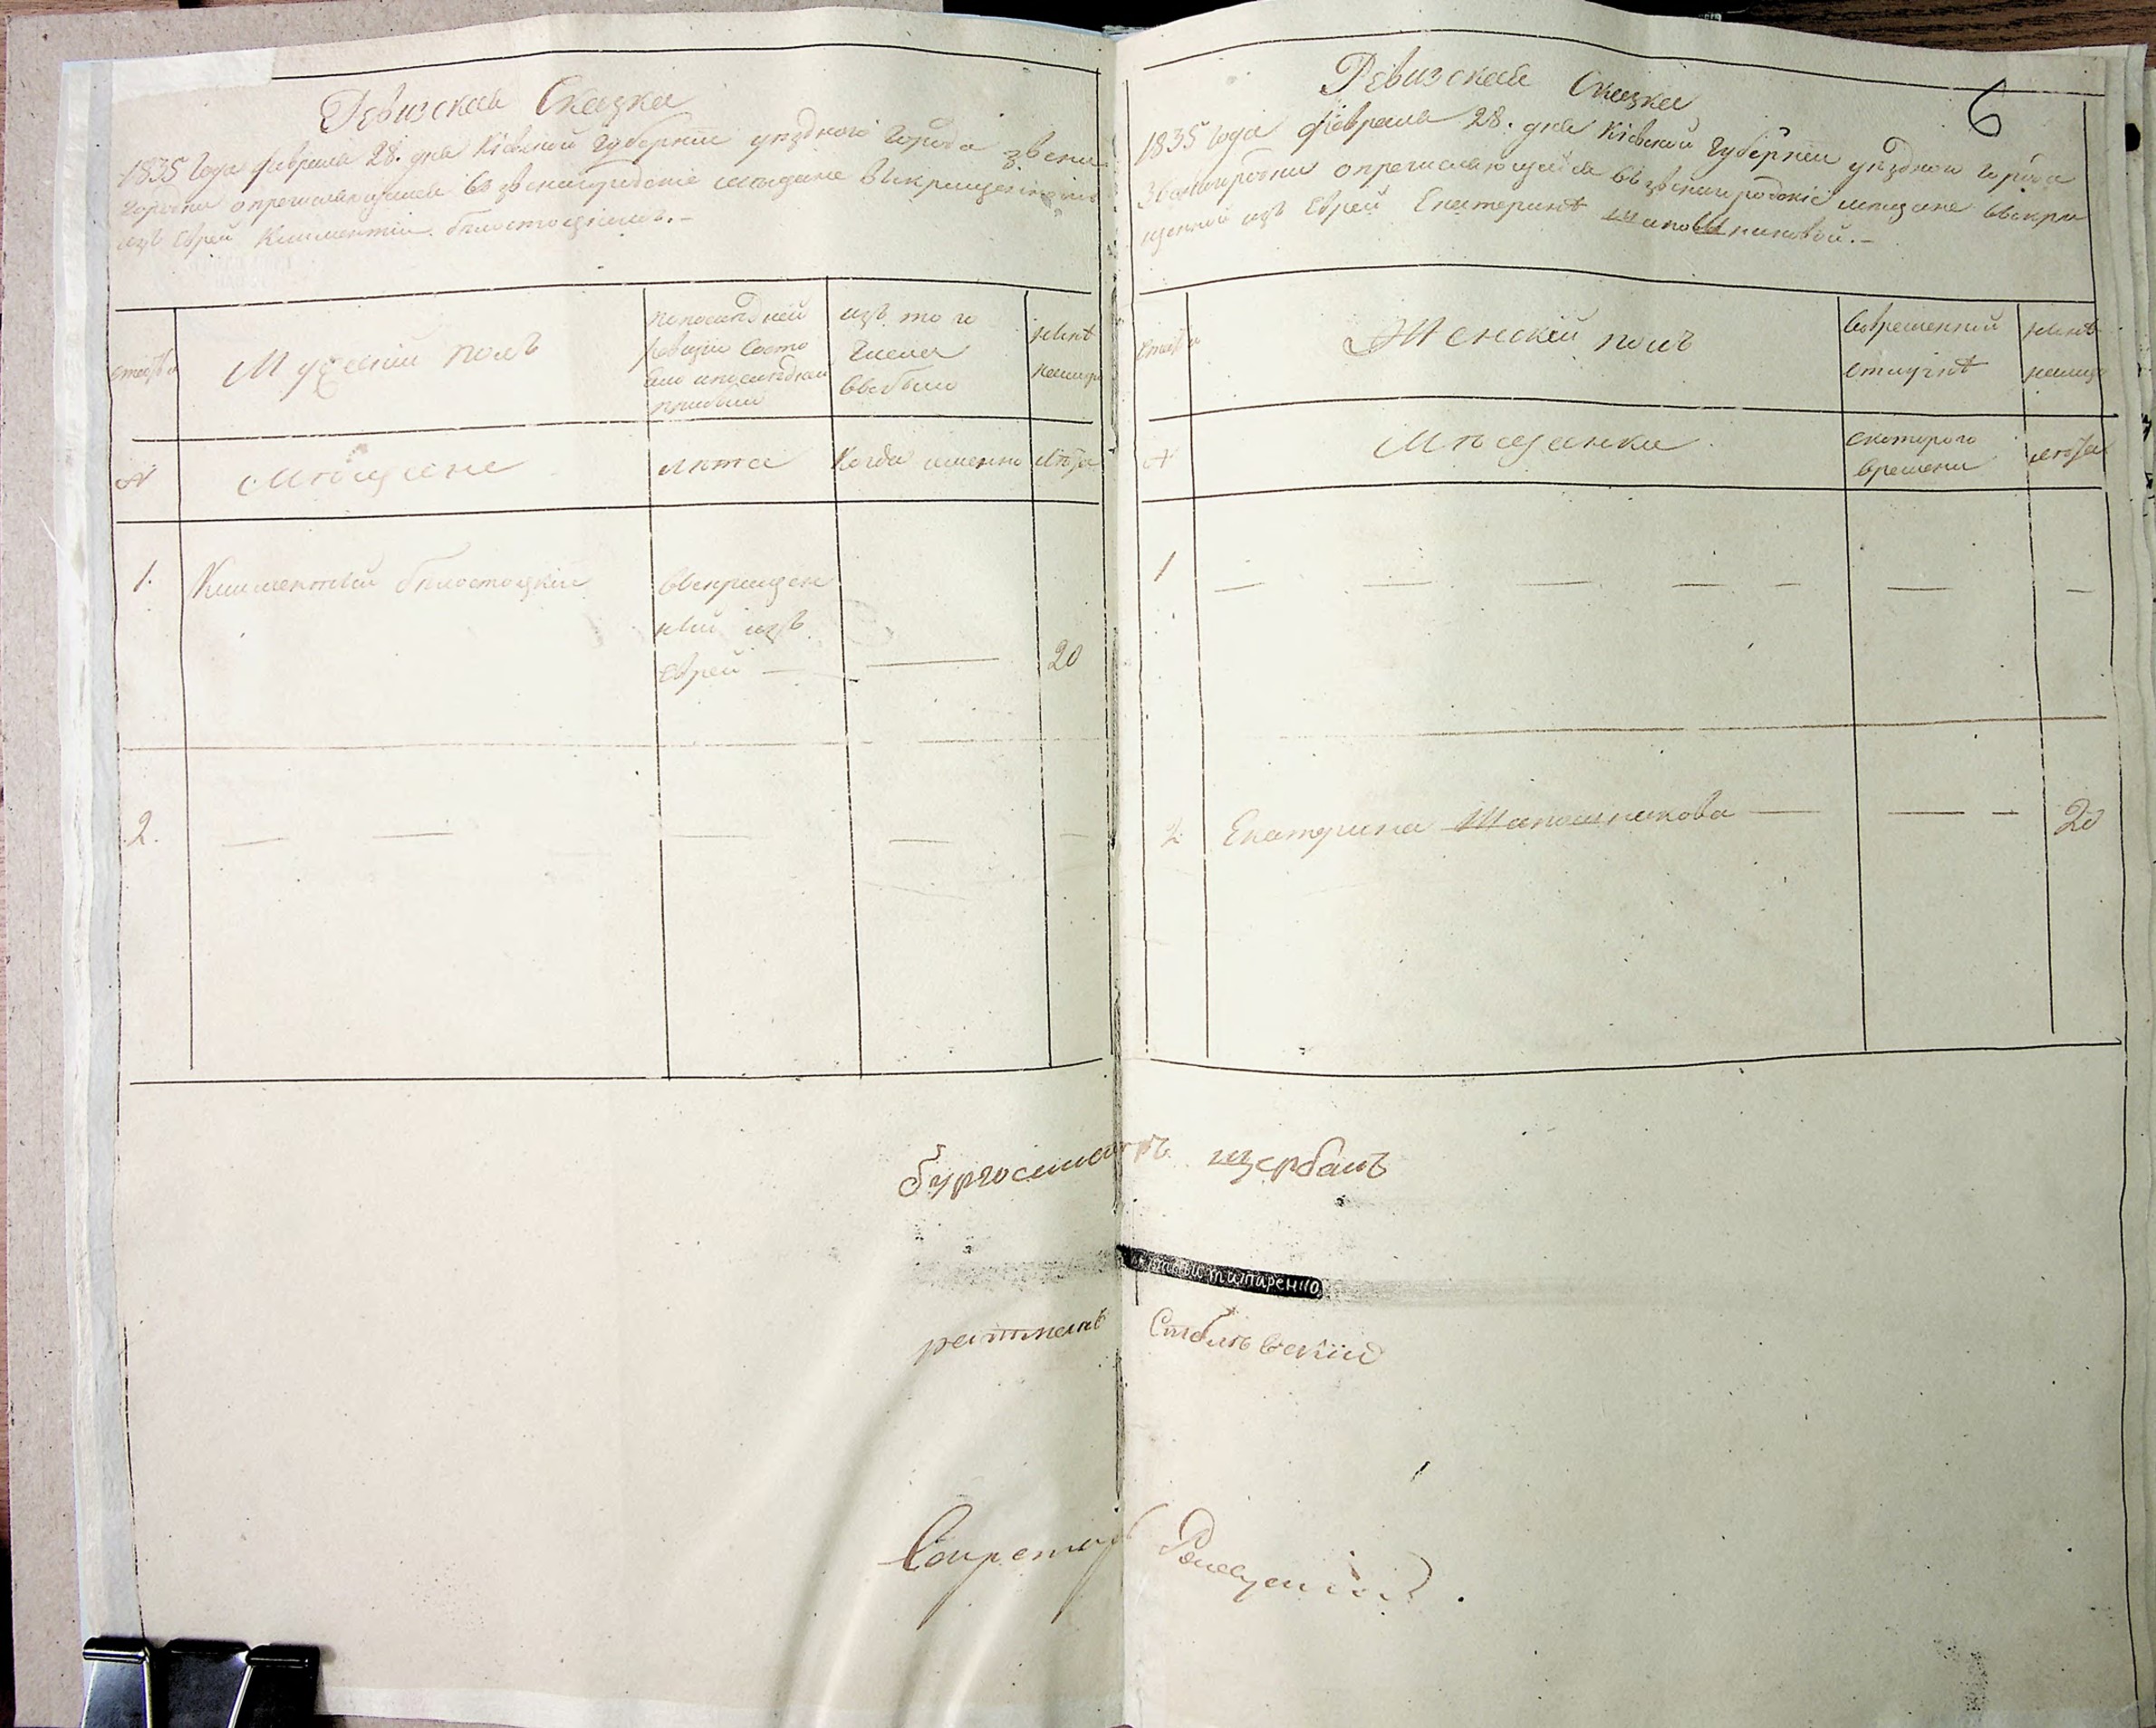 Ревизская Сказка
1835 года февраля 28. дня Кіевской Губерніи уѣзднаго города Звени
городки о причисляющемся въ звенигородскіе мѣщане выкрещенном
изъ Еврей Климентіи Бѣлостоцкимъ.-
семьи
Мужескій полъ
по последней
ревизіи состо
яло и после оной
прибыло
изъ того
числа
выбыло
нынѣ
на лицо
№
Мѣщане
лѣта
Когда именно
лѣта
1.
Климентый Бѣлостоцкій
выкрещен
ный изъ
еврей
20
2.
6
Ревизская Сказка
1835 года февраля 28. дня Кіевской Губерніи уѣзднаго города
Звенигородки о причисляющейся въ звенигородскіе мѣщане выкре
щенной изъ Еврей Екатеринѣ Шапошниковой.-
семьи
Женскій полъ
во временной
отлучкѣ
нынѣ
на лицо
№
Мѣщанки
с котораго
времени
лѣта
1
2
Екатерина Шапошникова
20
бургомистръ щербань
титаренко
ратманъ Стеблювскій
Секретарь